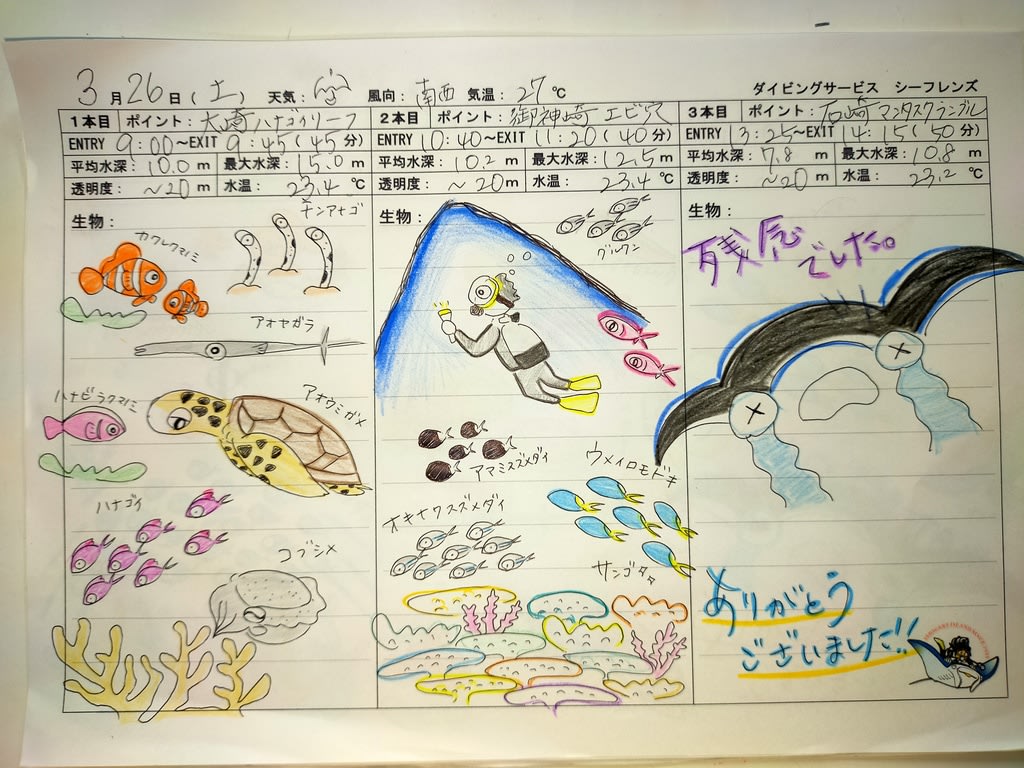 3月26日(土) 天気: 風向: 南西 気温: 27℃ ダイビングサービス シーフレンズ
1本目 ポイント: 大崎ハナゴイリーフ
ENTRY 9:00~EXIT 9:45(45分)
平均水深: 10.0m 最大水深: 15.0m
透明度: ~20m 水温: 23.4℃
生物:
カクレクマノミ
チンアナゴ
アオヤガラ
ハナビラクマノミ
アオウミガメ
ハナゴイ
コブシメ
2本目 ポイント: 御神崎 エビ穴
ENTRY 10:40~EXIT 11:20(40分)
平均水深: 10.2m 最大水深: 12.5m
透明度: ~20m 水温: 23.4℃
生物:
グルクン
アマミスズメダイ
ウメイロモドキ
オキナワスズメダイ
サンゴタタ
3本目 ポイント: 石崎マンタスクランブル
ENTRY 13:25~EXIT 14:15(50分)
平均水深: 7.8m 最大水深: 10.8m
透明度: ~20m 水温: 23.2℃
生物:
残念でした。
ありがとう
ございました!!